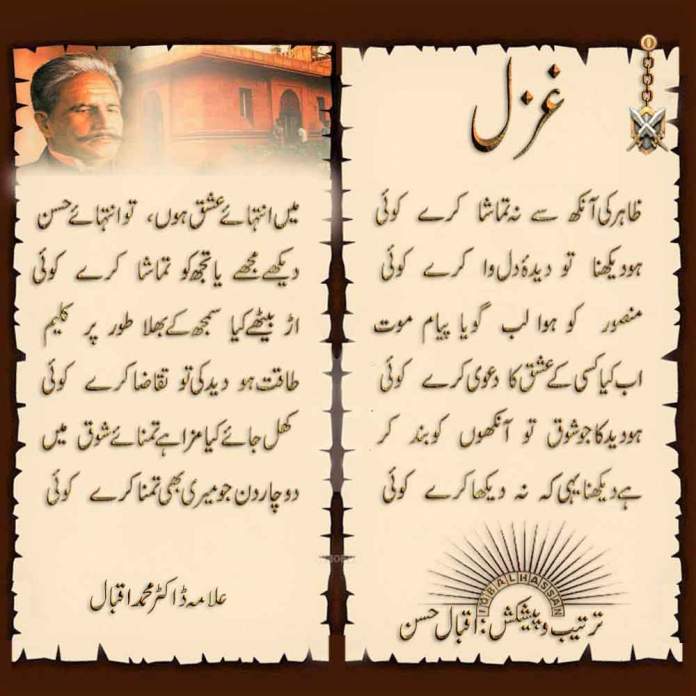 غزل
ظاہر کی آنکھ سے نہ تماشا کرے کوئی
ہو دیکھنا تو دیدۂ دل وا کرے کوئی
منصور کو ہوا لب گویا پیام موت
اب کیا کسی کے عشق کا دعویٰ کرے کوئی
ہو دید کا جو شوق تو آنکھوں کو بند کر
ہے دیکھنا یہی کہ نہ دیکھا کرے کوئی
IQBALHASSAN
ترتیب و پیشکش : اقبال حسن
میں انتہائے عشق ہوں، تو انتہائے حسن
دیکھے مجھے یا تجھ کو تماشا کرے کوئی
اڑ بیٹھے کیا سمجھ کے بھلا طور پر کلیم
طاقت ہو دید کی تو تقاضا کرے کوئی
کھل جائے کیا مزا ہے تمنائے شوق میں
دو چار دن جو میری بھی تمنا کرے کوئی
علامہ ڈاکٹر محمد اقبال